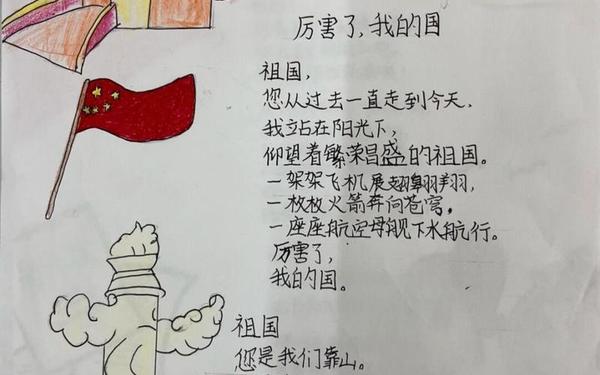 厉害了,我的国
祖国,
您从过去一直走到今天,
我站在阳光下,
仰望着繁荣昌盛的祖国。
一架架飞机展翅翱翔,
一枚枚火箭奔向苍穹,
一座座航空母舰下水航行。
厉害了,
我的国。
祖国
您是我们靠山。